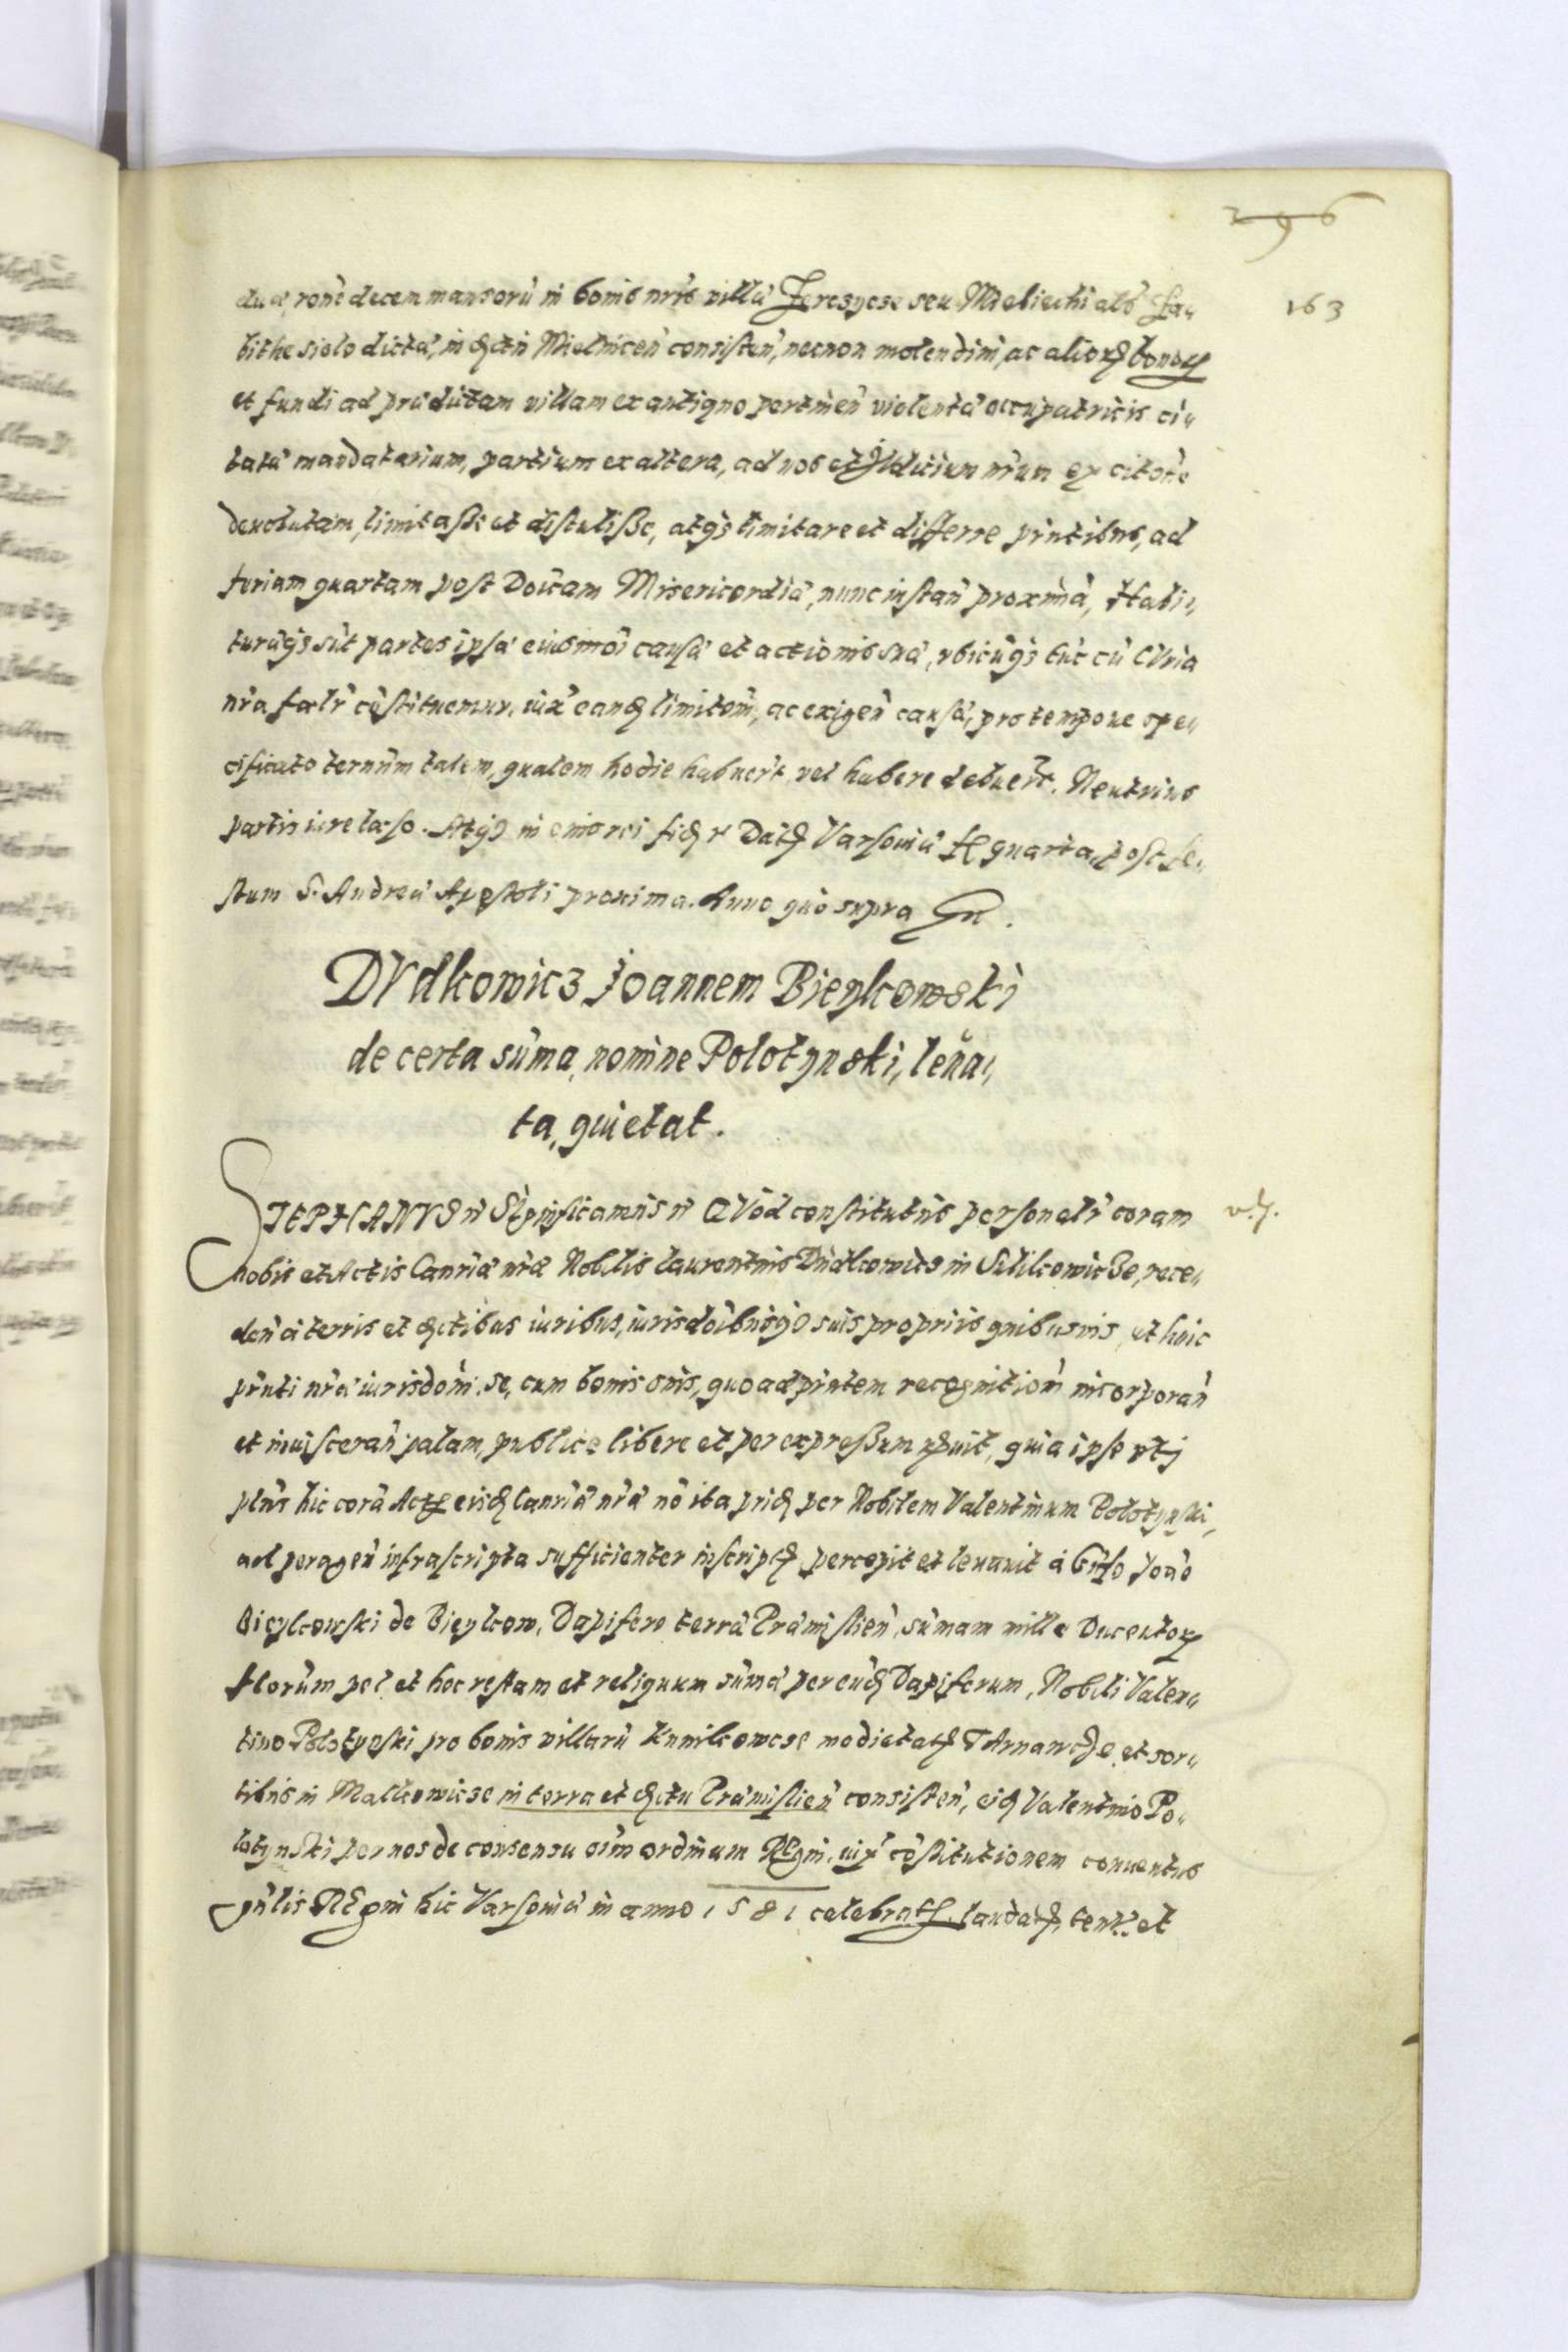 296
163
dua, rone decem mansorũ in bonis nris villa Jeresycse seu Mieliechi als Ja„
bithe siolo dicta, in dictu Mielnicen consisten, necnon molendini, ac aliorũ bonorũ
et fundi ad prædictam villam ex antiquo pertinen violenta occupatricis ci„
tata mandatarium, partium ex altera, ad nos et Iudicium nrum ex citone
devolutam, limitasse et distulisse, atqs limitare et differre pñtibus, ad
feriam quartam post Doicam Misericordia, nunc instan proxima, Habi„
turæqs sũt partes ipsa eiusmoi causa et actionis sua, vbicũqs tũc cũ Curia
nra fœlr cõstituemur, iux eand limitõm, ac exigen causa, pro tempore spe„
cificato termnm talem, qualem hodie habuert, vel habere debuert. Neutrius
partis iure læso. Atqs in eius rei fid rc Datũ Varsouia fer quarta, post fe„
stum S. Andrea Apostoli proxima. Anno quo supra
DVdkowicz Joannem Bieykowski
de certa sũma, nomine Polotynski, leũa„
ta, quietat.
STEPHANVS rc Significamus rc QVod constitutus personalr coram
v. y.
nobis et Actis Canriæ nræ Nobilis Laurentius Dudkowicz in Silikowicze, rece„
den a terris et dictibus iuribus, iurisdoibusqs suis propriis quibusvis, et huic
pñti nræ iurisdõni, se, cum bonis oñis, quoad pñtem recognitiom incorporan
et inuisceran palam, publice libere et per expressum rcduit, quia ipse vti
plnus hic corã Actis eiusd Canria nra nõ ita prid per Nobilem Valentinum Polotynski,
ad peragen infrascripta sufficienter inscript percepit et leuauit à Gñso Joãe
Bieykowski de Bieykow, Dapifero terræ Præmislien, sũmam mille Ducentorũ
florũm pol et hoc restam et reliquum sũma per eũd Dapiferum, Nobili Valen„
tino Polotynski pro bonis villarũ Knnikowcse medietatis TArnawcse, et sor„
tibus in Malkowicse in terra et dictu Præmislien consisten, eid Valentino Po„
lotynski per nos de consensu oim ordinum REgni, iux cõstitutionem conuentus
gñlis REgni hic Varsouia in anno 1581 celebrat, laudat, tent. et